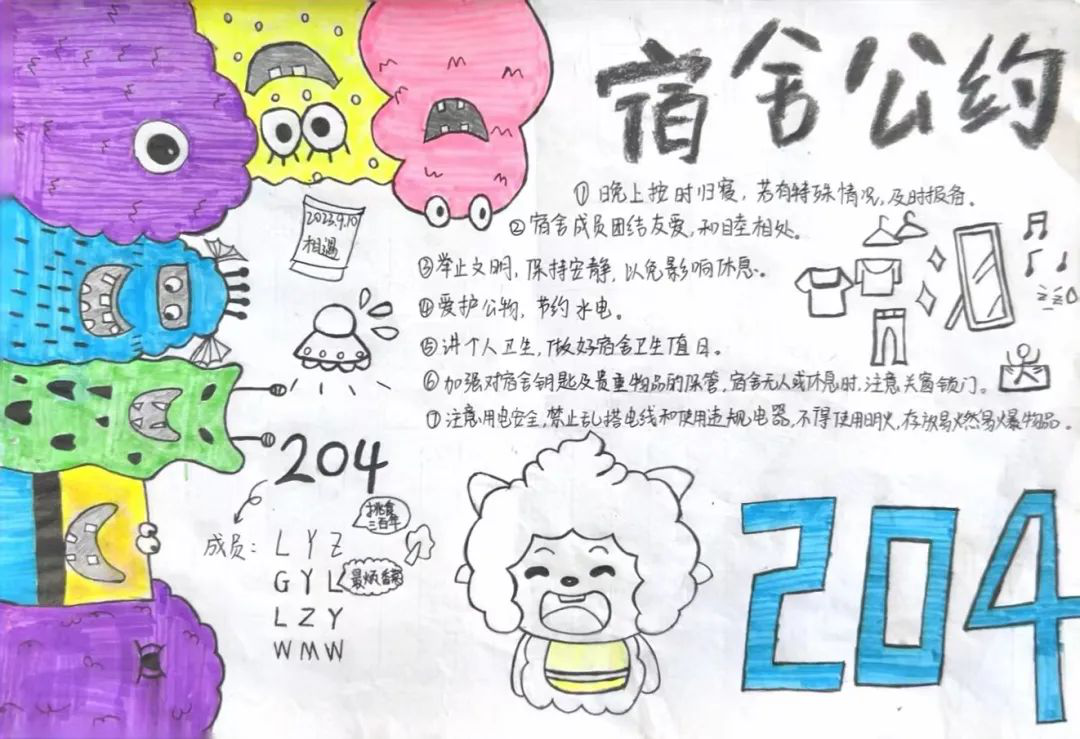 宿舍公约
①晚上按时归寝，若有特殊情况，及时报备。
②宿舍成员团结友爱，和睦相处。
③举止文明，保持安静，以免影响休息。
④爱护公物，节约水电。
⑤讲个人卫生，做好宿舍卫生值日。
⑥加强对宿舍钥匙及贵重物品的保管，宿舍无人或休息时，注意关窗锁门。
⑦注意用电安全，禁止乱搭电线和使用违规电器，不得使用明火，存放易燃易爆物品。
2023.9.10
相遇
204
成员：LYZ
GYL
LZY
WMW
三百年
最烦香菊
204